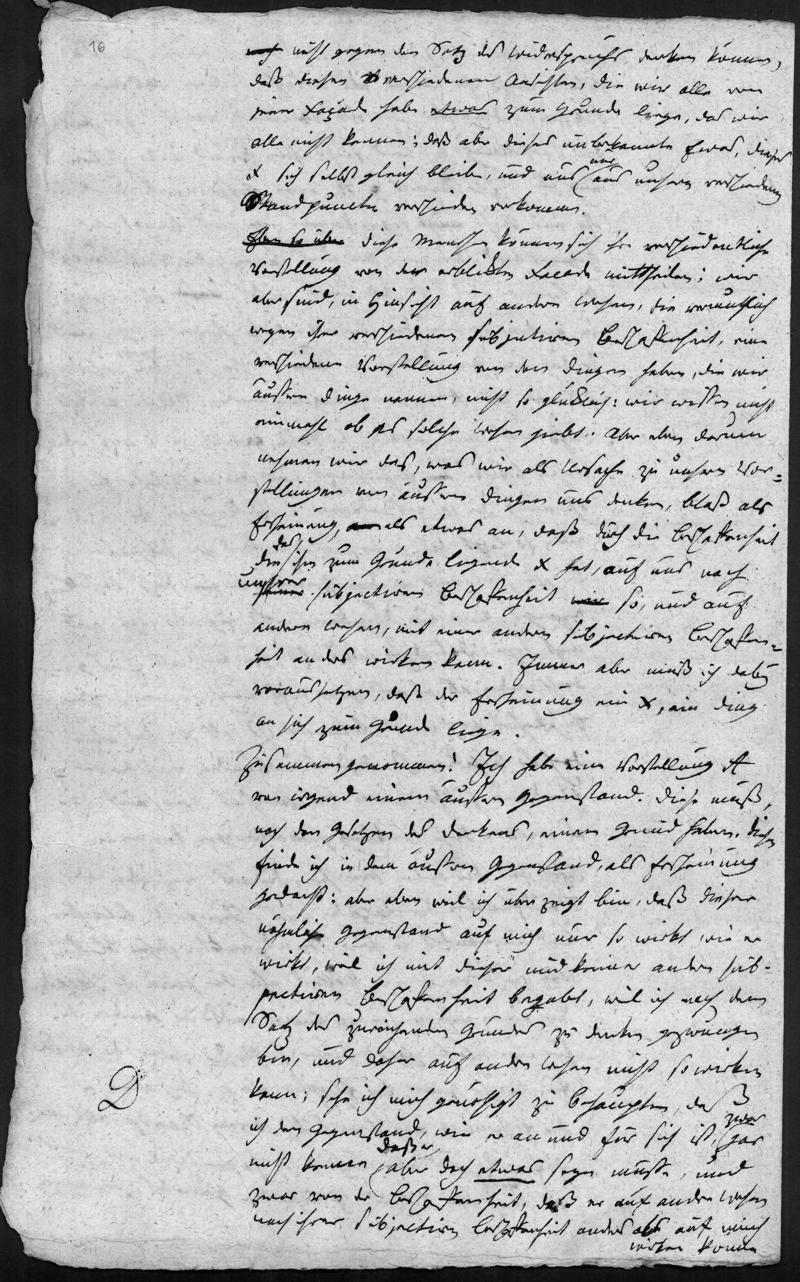 16
nicht gegen den Satz des Widerspruchs denken können,
daß diesen verschiedenen Ansichten, die wir alle von
jener Façade haben etwas zum Grunde liege, das wir
alle nicht kennen; daß aber dieses unbekannte Etwas, dieses
x sich selbst gleich bleibe, und uns nur aus unsern verschiedenen
Standpuncten verschieden vorkomme.
Eben so aber diese Menschen können sich ihre verschiedentliche
Vorstellung von der erblikten Facade mittheilen; wir
aber sind, in Hinsicht auf andere Wesen, die vermuthlich
wegen ihrer verschiedenen subjectiven Beschaffenheit, eine
verschiedene Vorstellung von den Dingen haben, die wir
äussere Dinge nennen, nicht so glüklich: wir wissen nicht
einmahl ob es solche Wesen giebt. Aber eben darum
nehmen wir das, was wir als Ursache zu unsern Vor-
stellungen von äussern Dingen uns denken, bloß als
Erscheinung, als etwas an, daß durch die Beschaffenheit
die das ihm zum Grunde liegende x hat, auf uns nach
unsrer subjectiven Beschaffenheit so, und auf
andere Wesen, mit einer andern subjectiven Beschaffen-
heit anders wirken kann. Immer aber muß ich dabey
voraussetzen, daß der Erscheinung ein x, ein Ding
an sich zum Grunde liege.
Zusammengenommen! Ich habe eine Vorstellung A
von irgend einem äussern Gegenstand. Diese muß,
nach den Gesetzen des Denkens, einen Grund haben. Diesen
finde ich in dem äussern Gegenstand, als Erscheinung
gedacht: aber eben weil ich überzeigt bin, daß dieser
nähmliche Gegenstand auf mich nur so wirkt wie er
wirkt, weil ich mit dieser und keiner andern sub-
jectiven Beschaffenheit begabt, weil ich nach dem
Satz des zureichenden Grundes zu denken gezwungen
bin, und daher auf andere Wesen nicht so wirken
kann; sehe ich mich genöthigt zu behaupten, daß
ich den Gegenstand, wie er an und für sich ist, zwar gar
nicht kenne, daß er aber doch etwas seyn müsse, und
zwar von der Beschaffenheit, daß er auf andere Wesen
nach ihrer subjectiven Beschaffenheit anders als auf mich
wirken könne
D